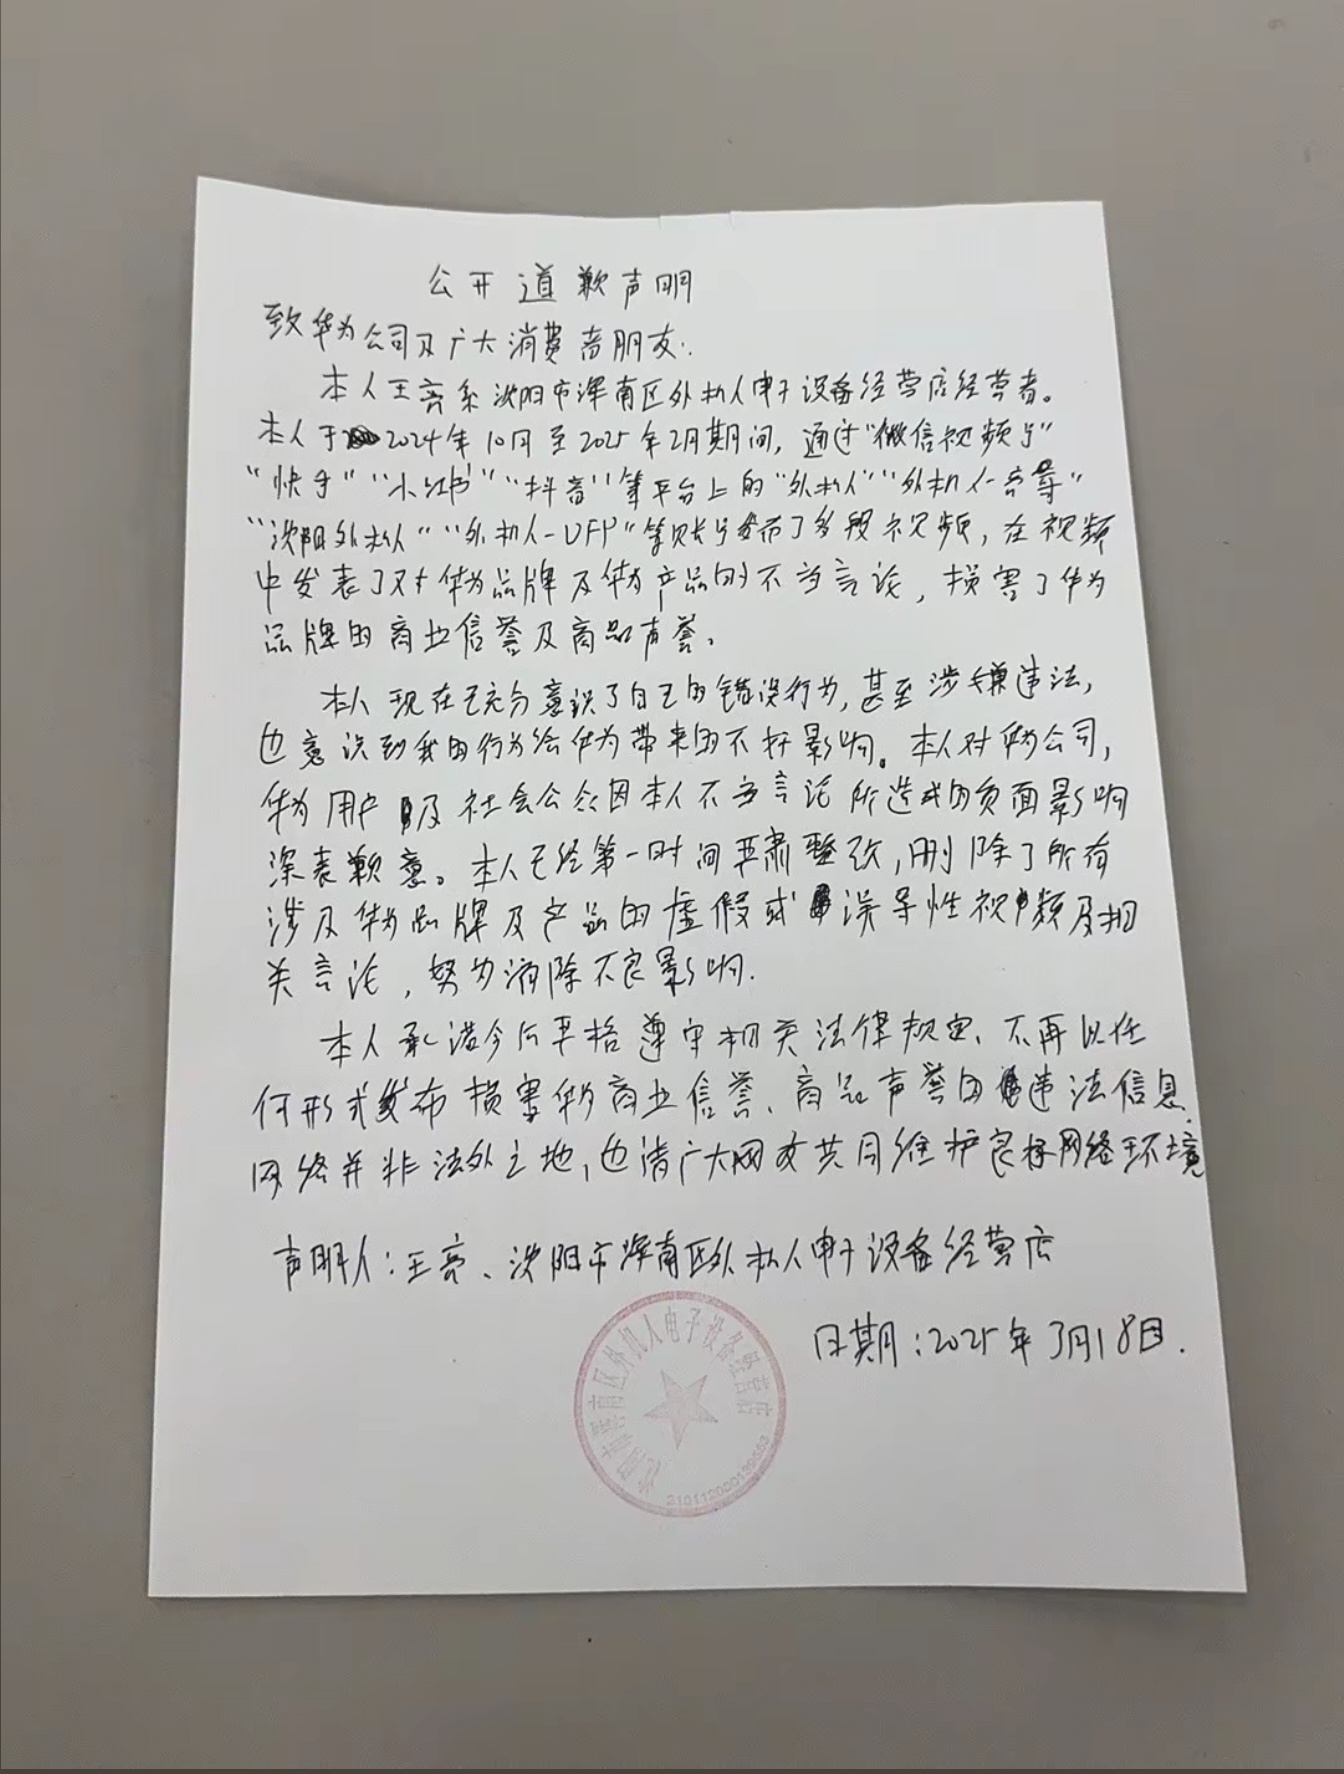 公开道歉声明
致华为公司及广大消费者朋友:
本人王亮系沈阳市浑南区外机人电子设备经营店经营者。
本人于2024年10月至2025年2月期间,通过"微信视频号"
"快手""小红书""抖音"等平台上的"外机人""外机人-亮哥"
"沈阳外机人""外机人-UFP"等账号发布了多段视频,在视频
中发表了对华为品牌及华为产品的不当言论,损害了华为
品牌的商业信誉及商品声誉。
本人现在已充分意识了自己的错误行为,甚至涉嫌违法,
也意识到我的行为给华为带来的不好影响。本人对华为公司,
华为用户及社会公众因本人不当言论所造成的负面影响
深表歉意。本人已经第一时间严肃整改,删除了所有
涉及华为品牌及产品的虚假或误导性视频及相
关言论,努力消除不良影响.
本人承诺今后严格遵守相关法律规定、不再以任
何形式发布损害华为商业信誉、商品声誉的违法信息.
网络并非法外之地,也请广大网友共同维护良好网络环境
声明人:王亮、沈阳市浑南区外机人电子设备经营店
日期:2025年3月18日.
沈阳市浑南区外机人电子设备经营店